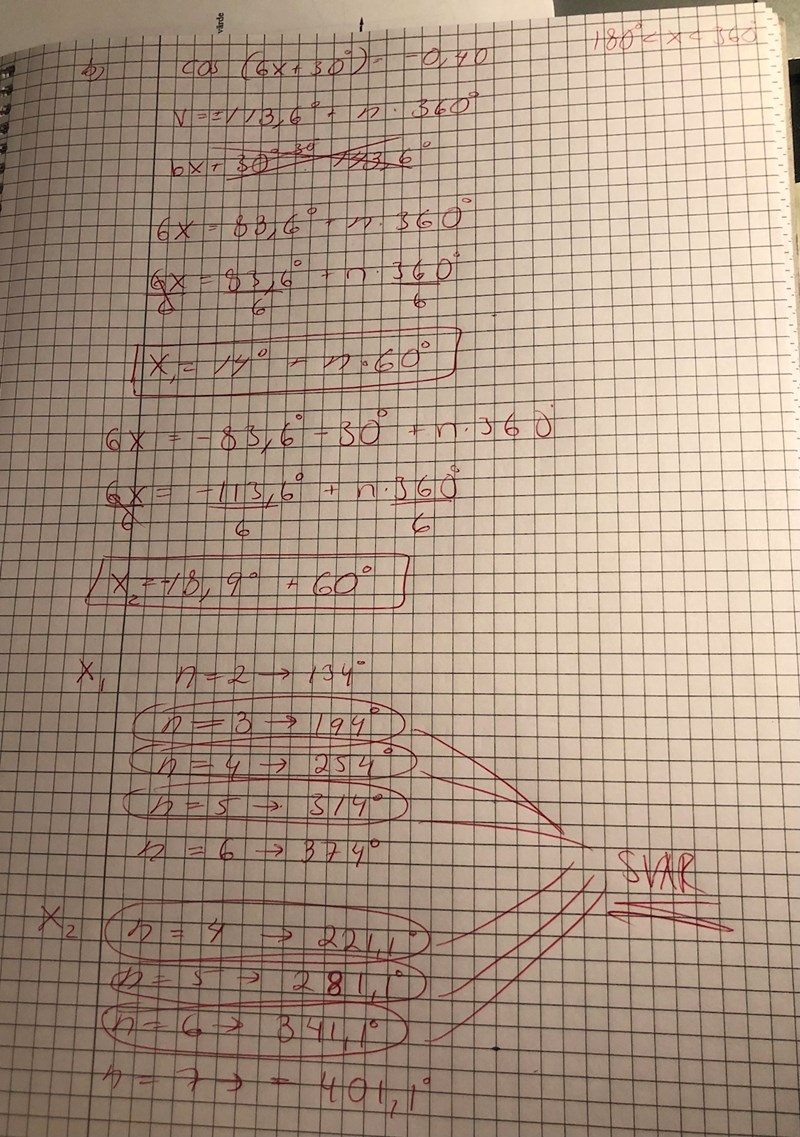 värde
b) cos (6x+30°) = -0,40 180° < x < 360°
v = ±113,6° + n · 360°
6x + 30° 143,6°
6x = 83,6° + n · 360°
6x/6 = 83,6°/6 + n · 360°/6
x₁ = 14° + n · 60°
6x = -83,6° - 30° + n · 360°
6x/6 = -113,6°/6 + n · 360°/6
x₂ = -18,9° + 60°
x₁ n = 2 → 134°
n = 3 → 194°
n = 4 → 254°
n = 5 → 314°
n = 6 → 374°
SVAR
x₂ n = 4 → 221,1°
n = 5 → 281,1°
n = 6 → 341,1°
n = 7 → - 401,1°